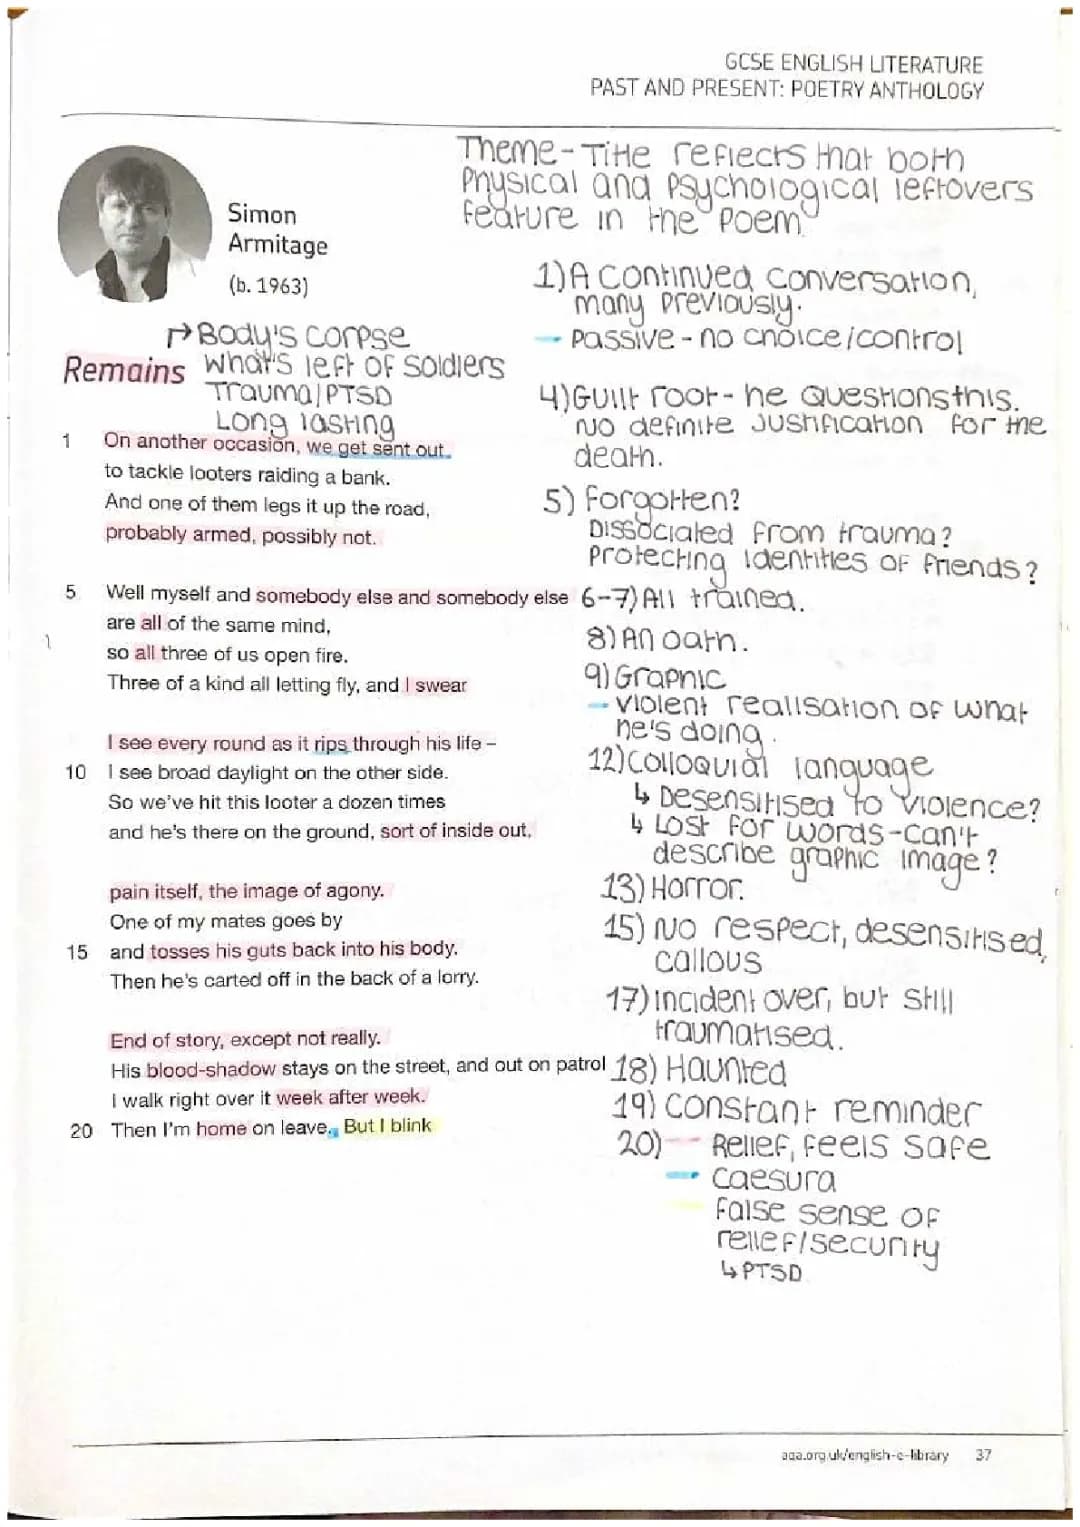 GCSE ENGLISH LITERATURE
PAST AND PRESENT: POETRY ANTHOLOGY
Theme - Title reflects that both
physical and psychological leftovers
feature in the poem
Simon
Armitage
(b. 1963)
1) A continued conversation,
many previously.
- Passive - no choice/control
↱ Body's corpse
Remains What's left of soldiers
Trauma/PTSD
Long lasting
4) Guilt root - he questions this.
No definite justification for the
death.
1 On another occasion, we get sent out
to tackle looters raiding a bank.
And one of them legs it up the road,
probably armed, possibly not.
5) Forgotten?
Dissociated from trauma?
Protecting identities of friends?
5 Well myself and somebody else and somebody else
are all of the same mind,
so all three of us open fire.
Three of a kind all letting fly, and I swear
6-7) All trained.
8) An oath.
9) Graphic
- violent realisation of what
he's doing.
I see every round as it rips through his life –
10 I see broad daylight on the other side.
So we've hit this looter a dozen times
and he's there on the ground, sort of inside out,
12) Colloquial language
↳ Desensitised to violence?
↳ Lost for words - can't
describe graphic image?
pain itself, the image of agony.
One of my mates goes by
15 and tosses his guts back into his body.
Then he's carted off in the back of a lorry.
13) Horror.
15) No respect, desensitised,
callous
17) incident over, but still
traumatised.
End of story, except not really.
His blood-shadow stays on the street, and out on patrol
I walk right over it week after week.
20 Then I'm home on leave. But I blink
18) Haunted
19) Constant reminder
20) - Relief, feels safe
- Caesura
- False sense of
relief/security
↳ PTSD
aqa.org.uk/english-e-library 37